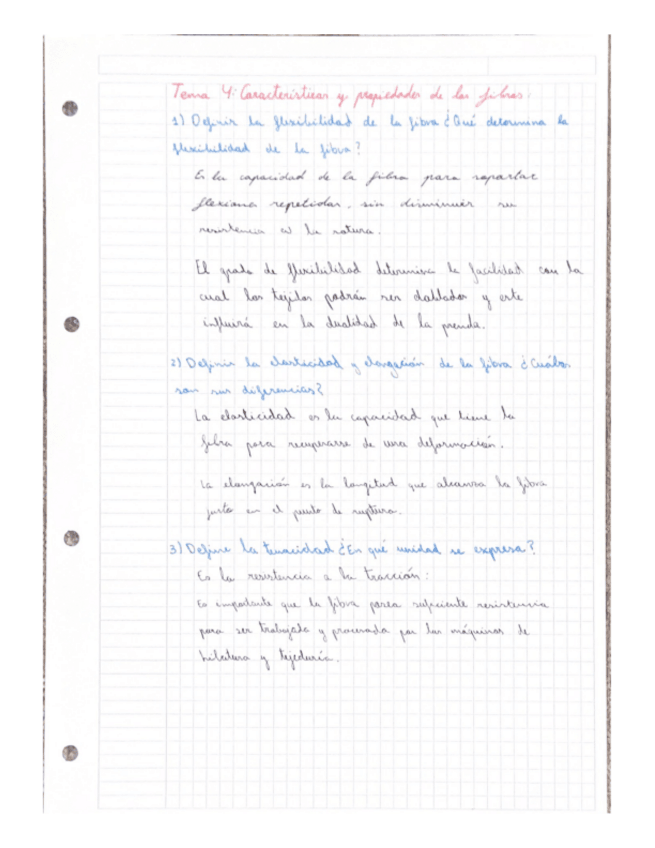 Tema 4: Características y propiedades de las fibras.
1) Definir la flexibilidad de la fibra ¿Qué determina la
flexibilidad de la fibra?
Es la capacidad de la fibra para soportar
flexiones repetidas, sin disminuir su
resistencia a la rotura.
El grado de flexibilidad determina la facilidad con la
cual los tejidos podrán ser doblados y este
influirá en la dualidad de la prenda.
2) Definir la elasticidad y elongación de la fibra ¿Cuáles
son sus diferencias?
La elasticidad es la capacidad que tiene la
fibra para recuperarse de una deformación.
La elongación es la longitud que alcanza la fibra
justo en el punto de ruptura.
3) Define la tenacidad ¿En qué unidad se expresa?
Es la resistencia a la tracción:
Es importante que la fibra posea suficiente resistencia
para ser trabajada y procesada por las máquinas de
hilatura y tejeduría.